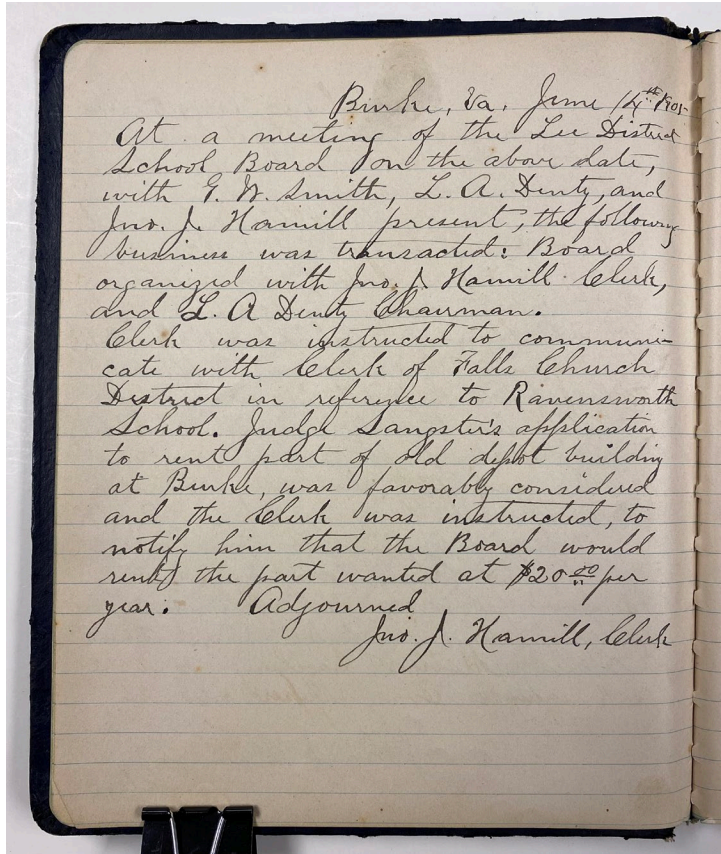 Burke, Va. June 14th 1905
At a meeting of the Lee District
School Board on the above date,
with G. W. Smith, L. A. Denty, and
Jno. J. Hamill present, the following
business was transacted: Board
organized with Jno. J. Hamill Clerk,
and L. A Denty Chairman.
Clerk was instructed to communi-
cate with Clerk of Falls Church
District in reference to Ravensworth
School. Judge Sangster's application
to rent part of old depot building
at Burke, was favorably considered
and the Clerk was instructed, to
notify him that the Board would
rent the part wanted at $20.00 per
year. Adjourned
Jno. J. Hamill, Clerk